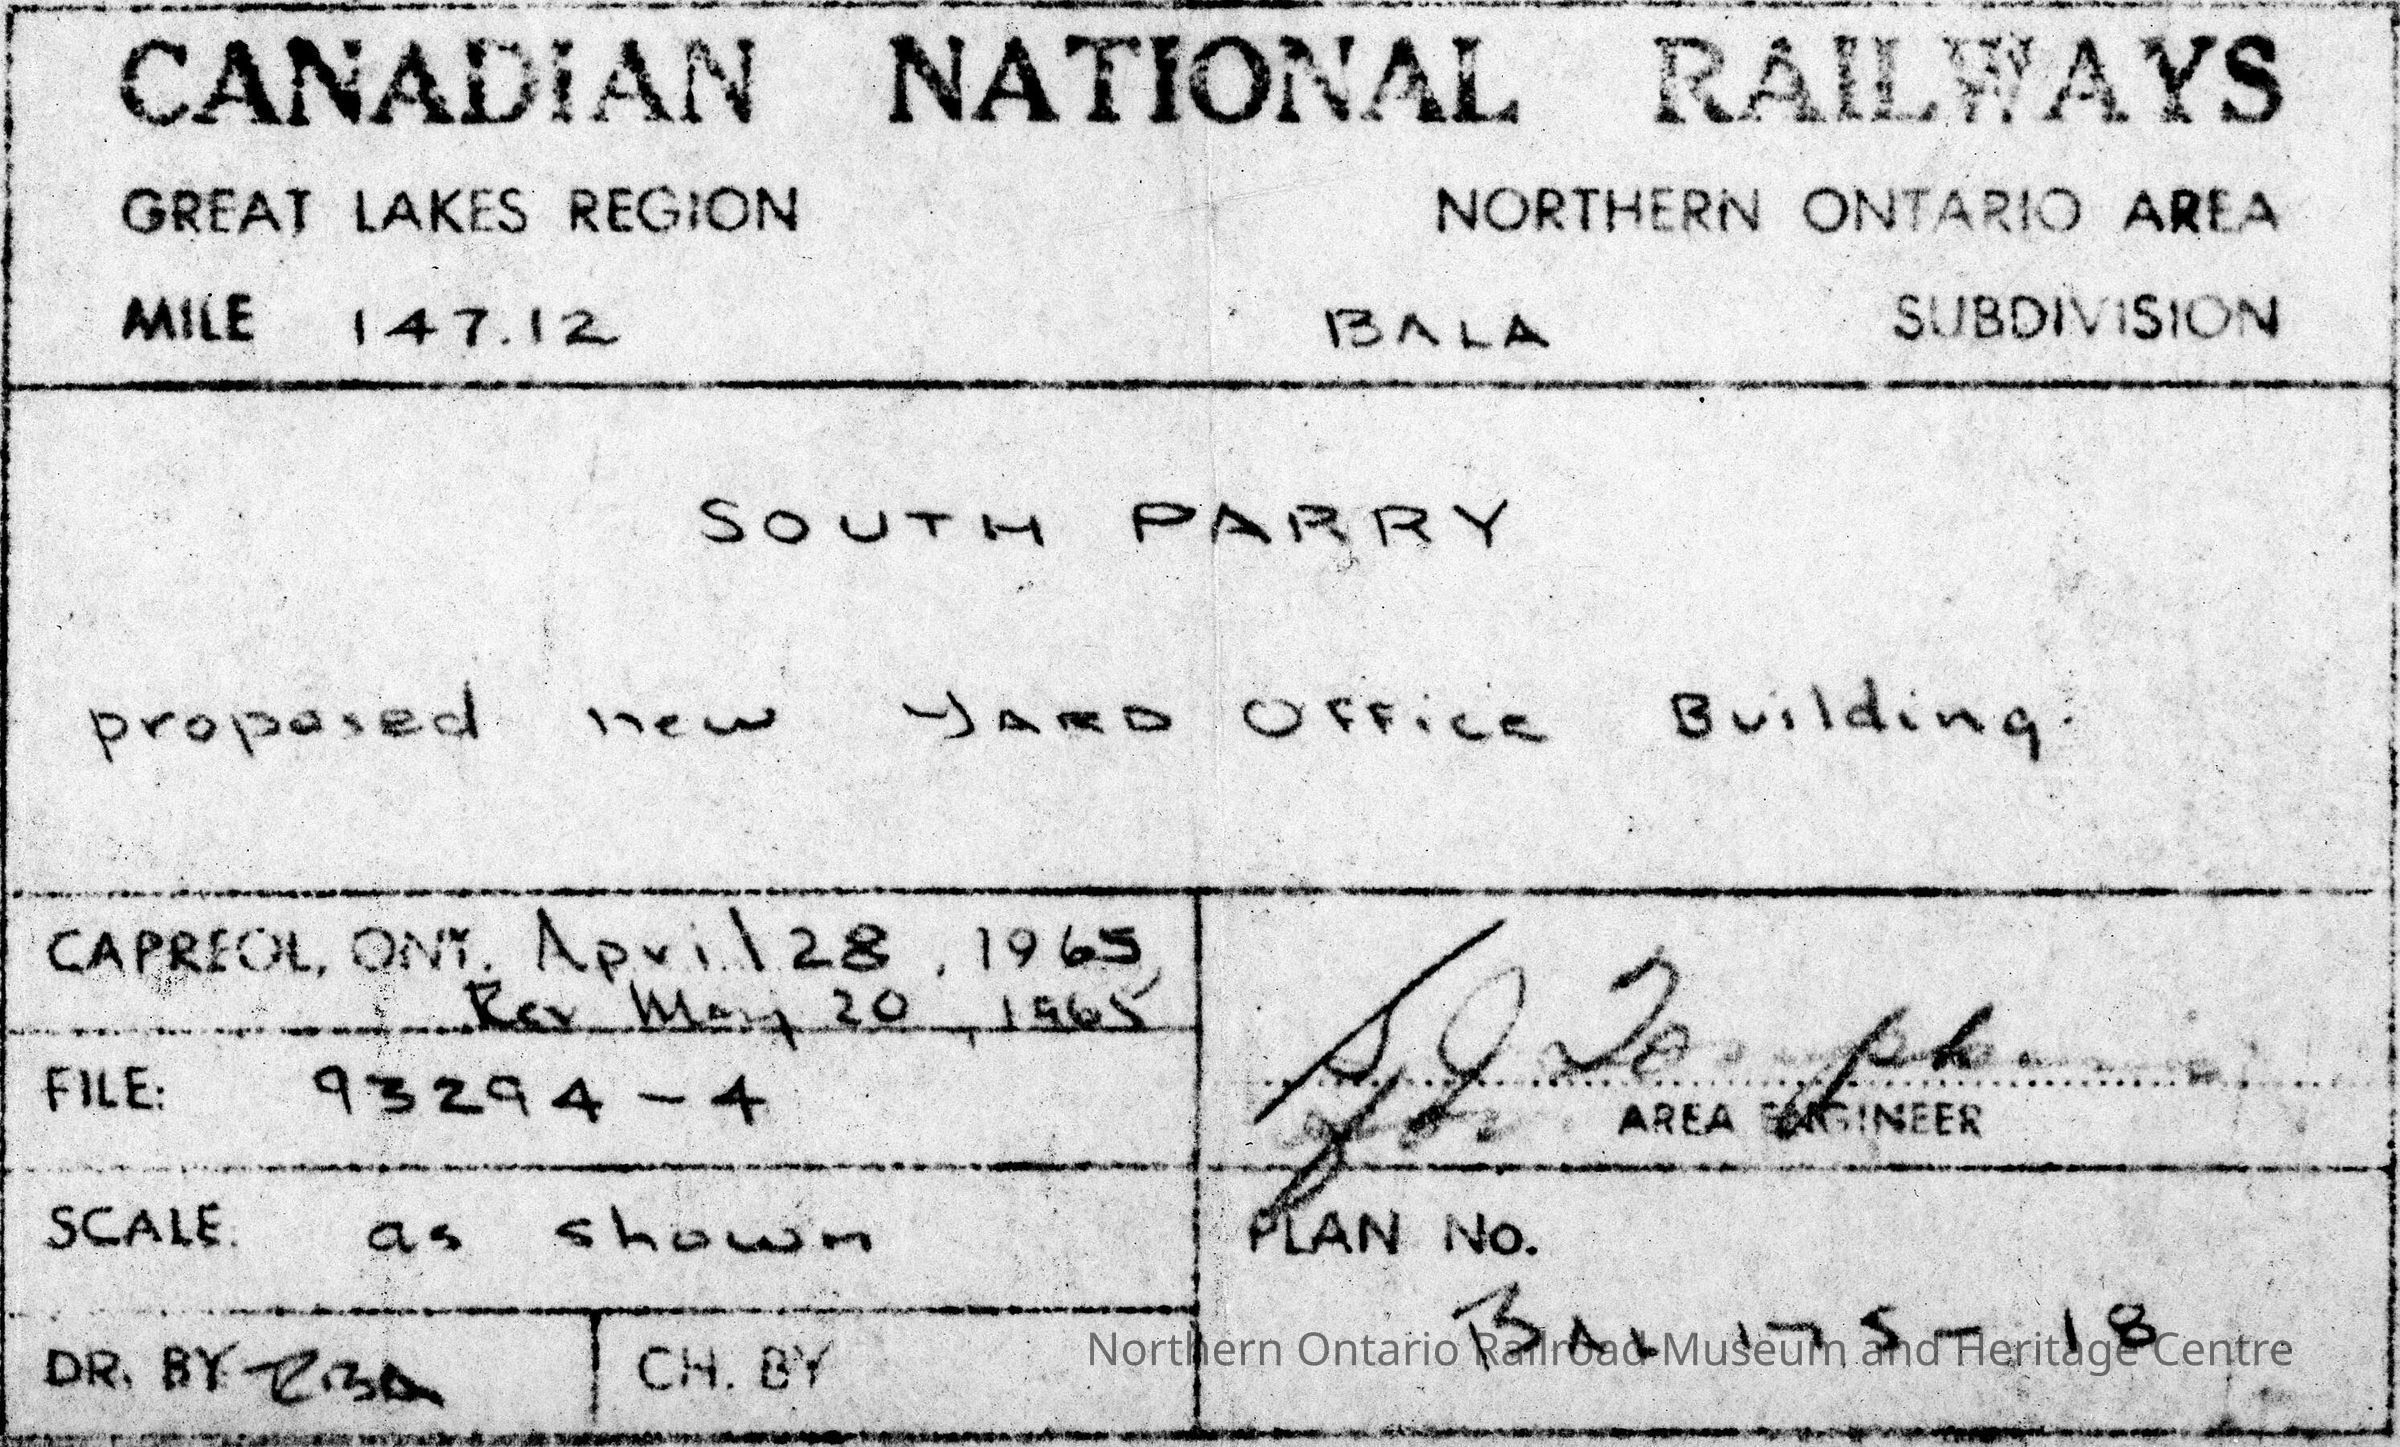 CANADIAN NATIONAL RAILWAYS
GREAT LAKES REGION NORTHERN ONTARIO AREA
MILE 147.12 BALA SUBDIVISION
SOUTH PARRY
proposed new YARD OFFicE Building.
CAPREOL, ONT. April 28, 1965
Rev May 20, 1965
FILE: 93294-4
AREA ENGINEER
SCALE. as shown
PLAN No.
BAL 175-18
DR. BY
CH. BY
Northern Ontario Railroad Museum and Heritage Centre